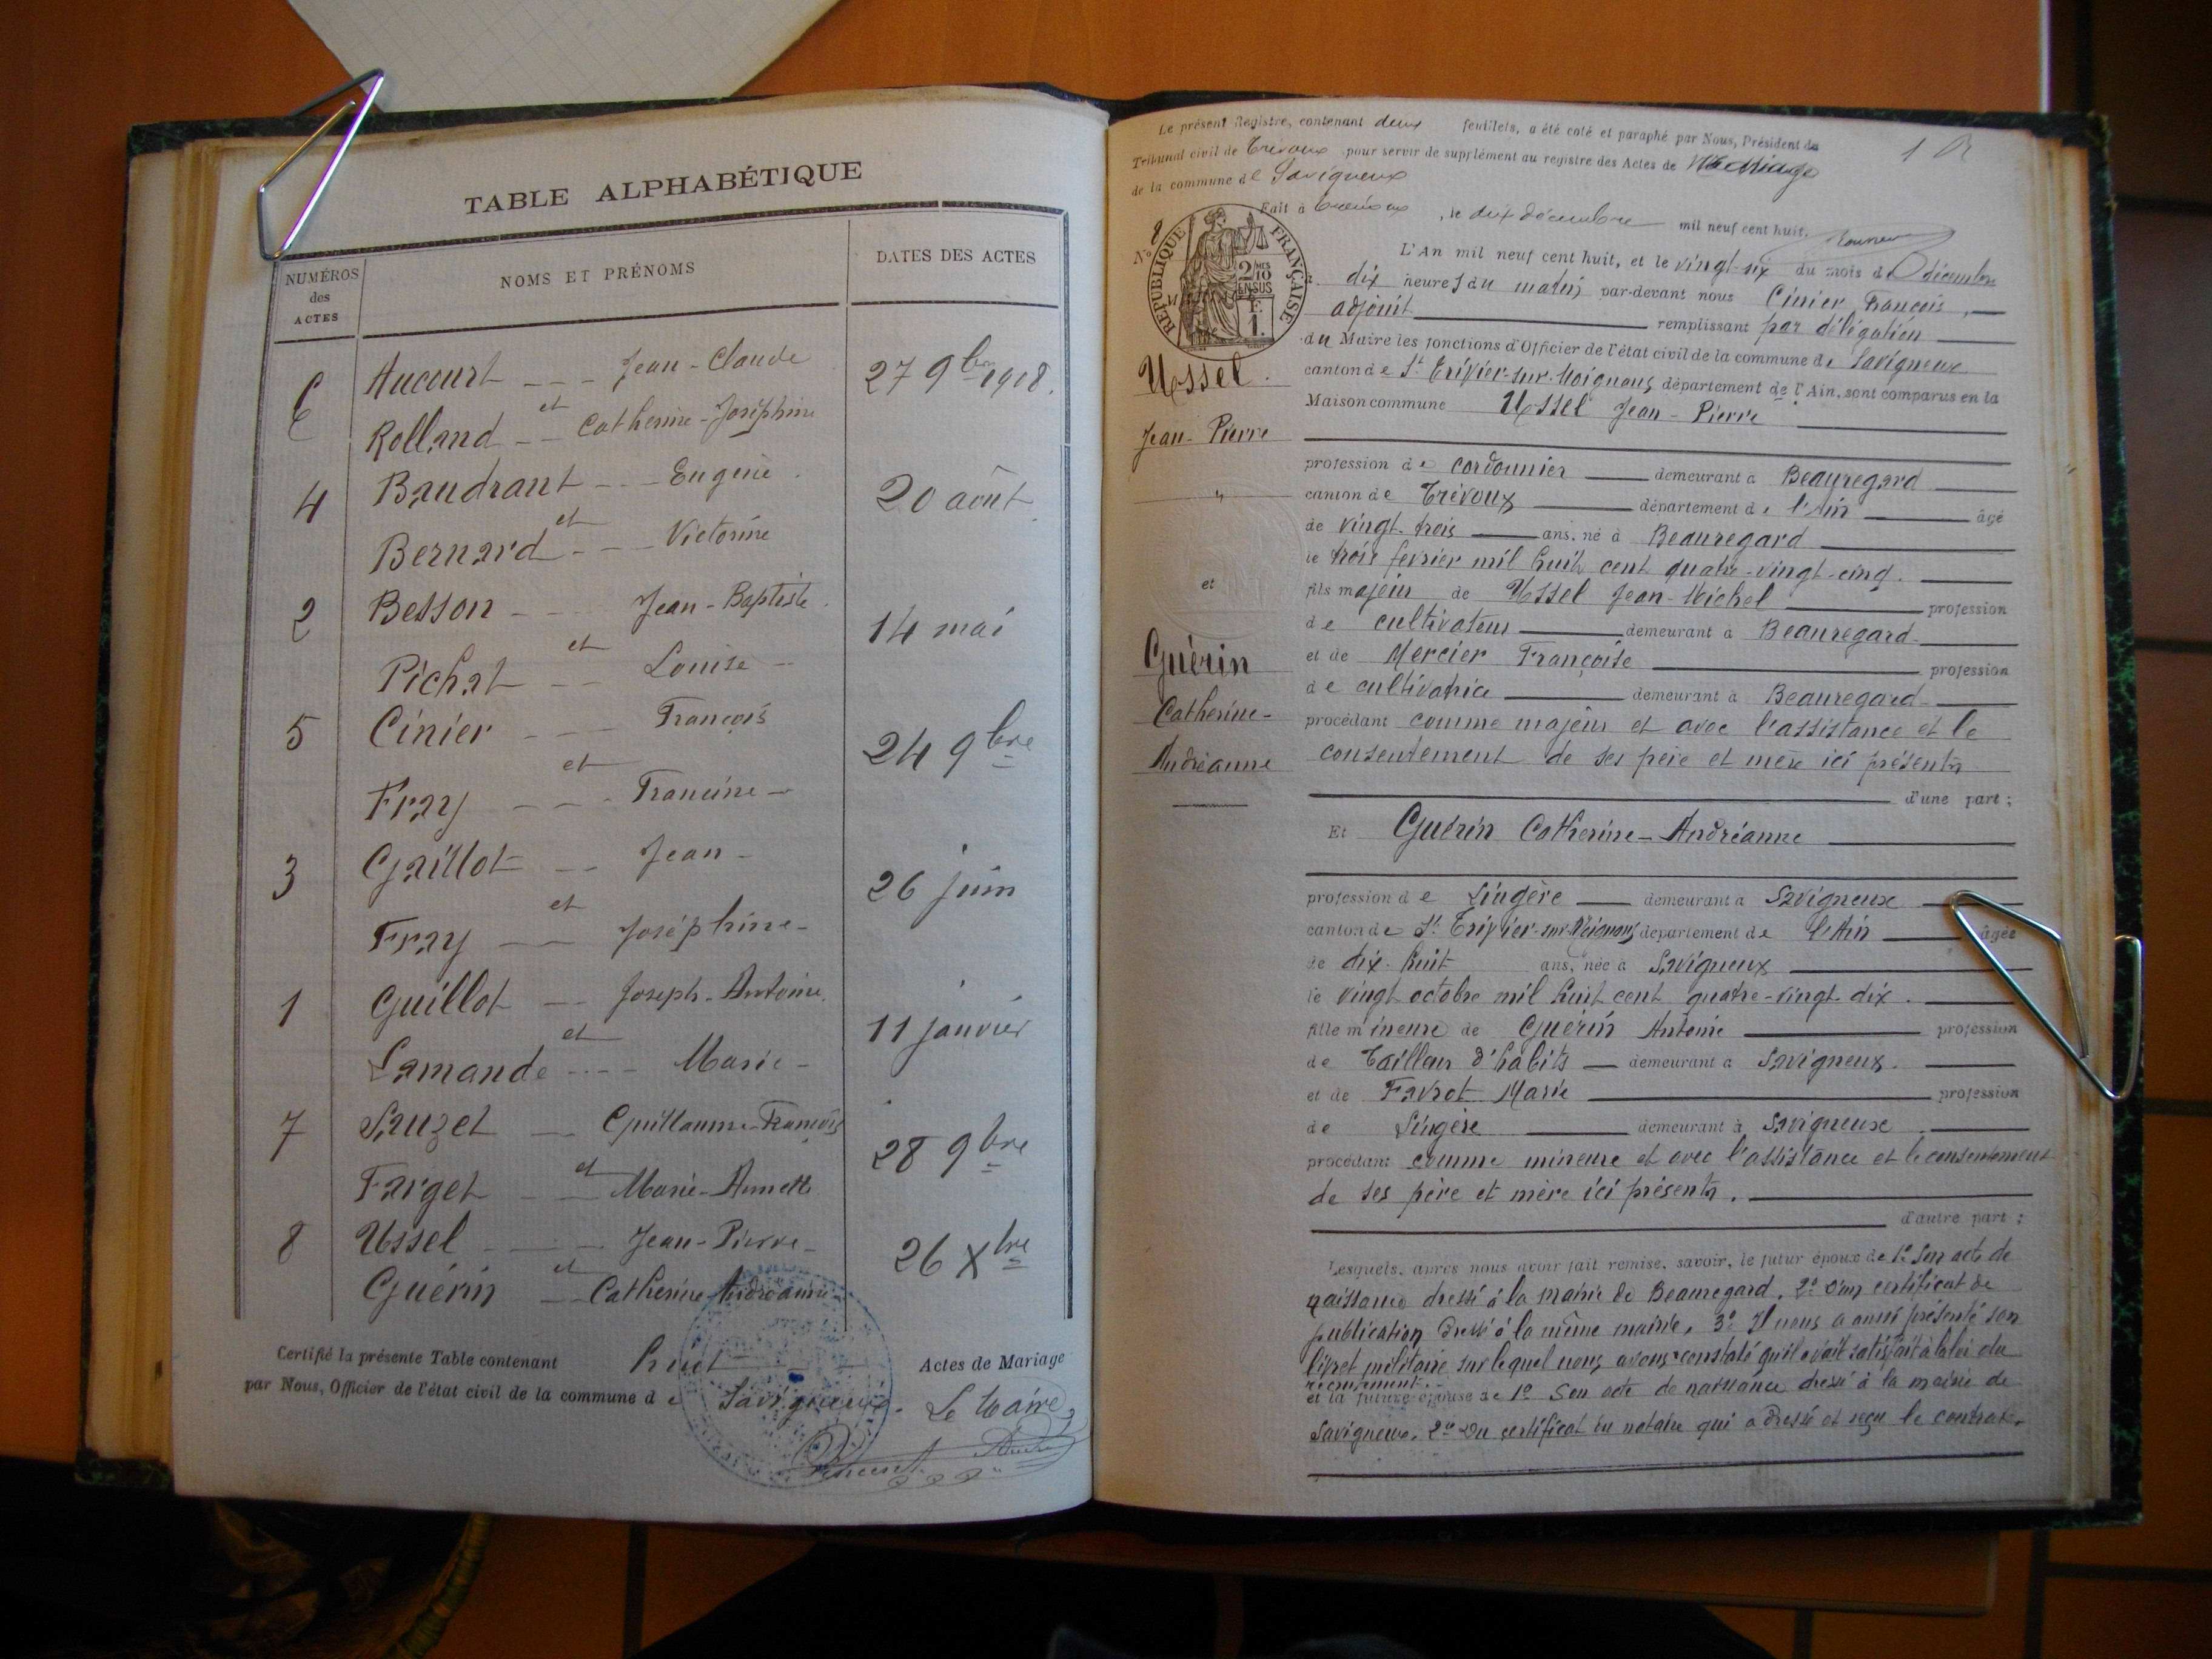 TABLE ALPHABÉTIQUE
NUMÉROS des ACTES
NOMS ET PRÉNOMS
DATES DES ACTES
6 Aucourt - - - Jean-Claude 27 9bre 1908.
et
Rolland - - Catherine-Joséphine
4 Baudrant - - - Eugène 20 août
et
Bernard - - - Victorine
2 Besson - - Jean-Baptiste 14 mai
et
Pichat - - Louise -
5 Cinier - - - François 24 9bre
et
Fray - - - Francine -
3 Gaillot - - Jean - 26 juin
et
Fray - - Joséphine -
1 Guillot - - Joseph-Antoine 11 janvier
et
Lamande - - - Marie -
7 Sauzet - Guillaume-François 28 9bre
et
Farget - - Marie-Annette
8 Ussel - - - Jean-Pierre - 26 Xbre
et
Guérin - Catherine-Andréanne
Certifié la présente Table contenant huit - - Actes de Mariage
par Nous, Officier de l'état civil de la commune de Savigneux. Le Maire,
Le présent Registre, contenant deux feuillets, a été coté et paraphé par Nous, Président du
Tribunal civil de Trévoux pour servir de supplément au registre des Actes de Mariage
de la commune de Savigneux
Fait à Trévoux, le dix décembre mil neuf cent huit.
1
N° 8
RÉPUBLIQUE FRANÇAISE
2/10 EN SUS
F. 1.
L'An mil neuf cent huit, et le vingt-six du mois de décembre
dix heures du matin par-devant nous Cinier François,
adjoint remplissant par délégation
du Maire les fonctions d'Officier de l'état civil de la commune de Savigneux
canton de St Trivier-sur-Moignans, département de l'Ain, sont comparus en la
Maison commune Ussel Jean-Pierre
Ussel.
Jean-Pierre
et
Guérin
Catherine-
Andréanne
profession de cordonnier demeurant à Beauregard
canton de Trévoux département de l'Ain âgé
de vingt-trois ans, né à Beauregard
le trois fevrier mil huit cent quatre-vingt-cinq.
fils majeur de Ussel Jean-Michel profession
de cultivateur demeurant à Beauregard
et de Mercier Françoise profession
de cultivatrice demeurant à Beauregard
procédant comme majeur et avec l'assistance et le
consentement de ses père et mère ici présents
d'une part ;
Et Guérin Catherine-Andréanne
profession de Lingère demeurant à Savigneux
canton de St Trivier-sur-Moignans département de l'Ain âgée
de dix-huit ans, née à Savigneux
le vingt octobre mil huit cent quatre-vingt-dix.
fille mineure de Guérin Antoine profession
de Tailleur d'habits demeurant à Savigneux.
et de Favrot Marie profession
de Lingère demeurant à Savigneux.
procédant comme mineure et avec l'assistance et le consentement
de ses père et mère ici présents.
d'autre part ;
Lesquels, après nous avoir fait remise, savoir, le futur époux de 1° Son acte de
naissance dressé à la mairie de Beauregard, 2° D'un certificat de
publication dressé à la même mairie, 3° Il nous a aussi présenté son
livret militaire sur lequel nous avons constaté qu'il avait satisfait à la loi du
recrutement.
et la future épouse de 1° Son acte de naissance dressé à la mairie de
Savigneux. 2° Du certificat du notaire qui a dressé et reçu le contrat.